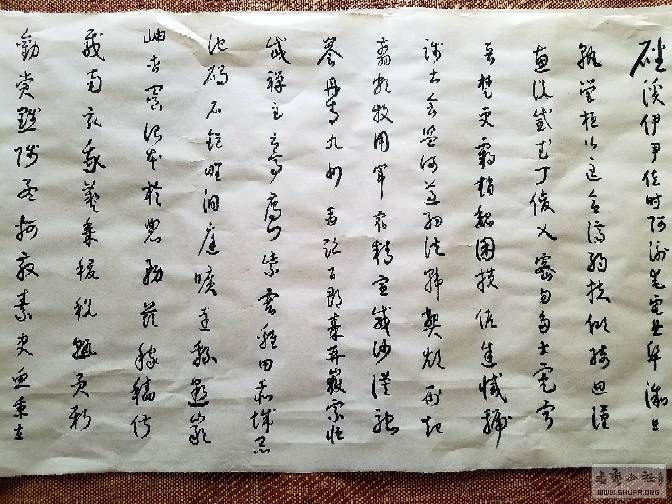 磻溪伊尹佐时阿衡奄宅曲阜微旦
孰營桓公匡合濟弱扶傾綺回漢
惠說感武丁俊乂密勿多士寔寧
晉楚更霸趙魏困橫假途滅虢
踐土會盟何遵約法韓弊煩刑起
翦頗牧用軍最精宣威沙漠馳
譽丹青九州禹跡百郡秦并嶽宗恒
岱禪主云亭雁門紫塞雞田赤城昆
池碣石鉅野洞庭曠遠緜邈巖
岫杳冥治本於農務茲稼穡俶
載南畝我藝黍稷稅熟貢新
勸賞黜陟孟軻敦素史魚秉直
WWW.SHUFA.ORG